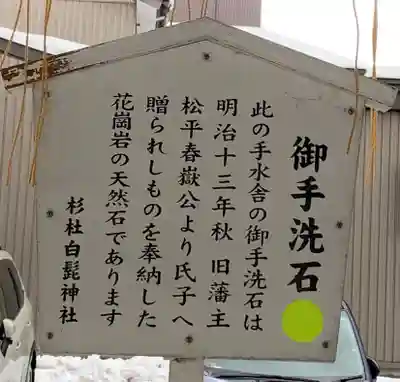 御手洗石
此の手水舎の御手洗石は
明治十三年秋 旧藩主
松平春嶽公より氏子へ
贈られしものを奉納した
花崗岩の天然石であります
杉杜白髭神社